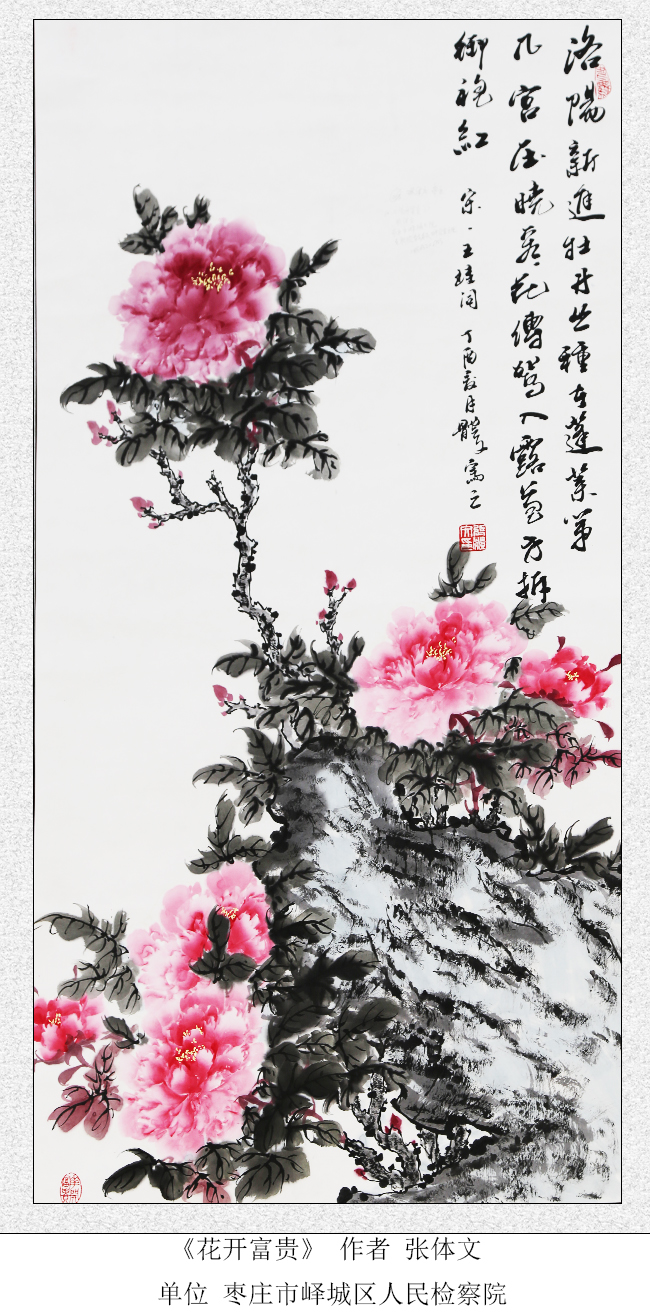 洛陽新進牡丹丛種在蓬莱第
几宫压晓看花傳駕入露苞方拆
御袍紅 宋·王珪词 丁酉 月體文寫之
《花开富贵》 作者 张体文
单位 枣庄市峄城区人民检察院